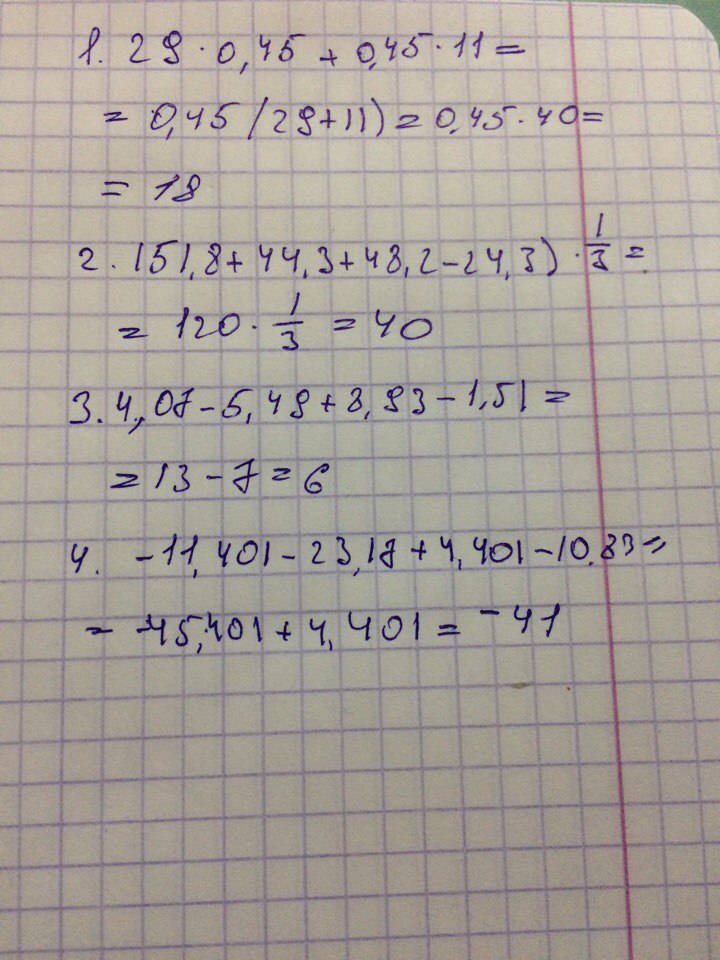 1. 29 · 0,45 + 0,45 · 11 =
= 0,45 (29+11) = 0,45 · 40 =
= 18
2. (51,8 + 44,3 + 48,2 - 24,3) · 1/3 =
= 120 · 1/3 = 40
3. 4,07 - 5,49 + 8,93 - 1,51 =
= 13 - 7 = 6
4. -11,401 - 23,17 + 4,401 - 10,83 =
= -45,401 + 4,401 = -41